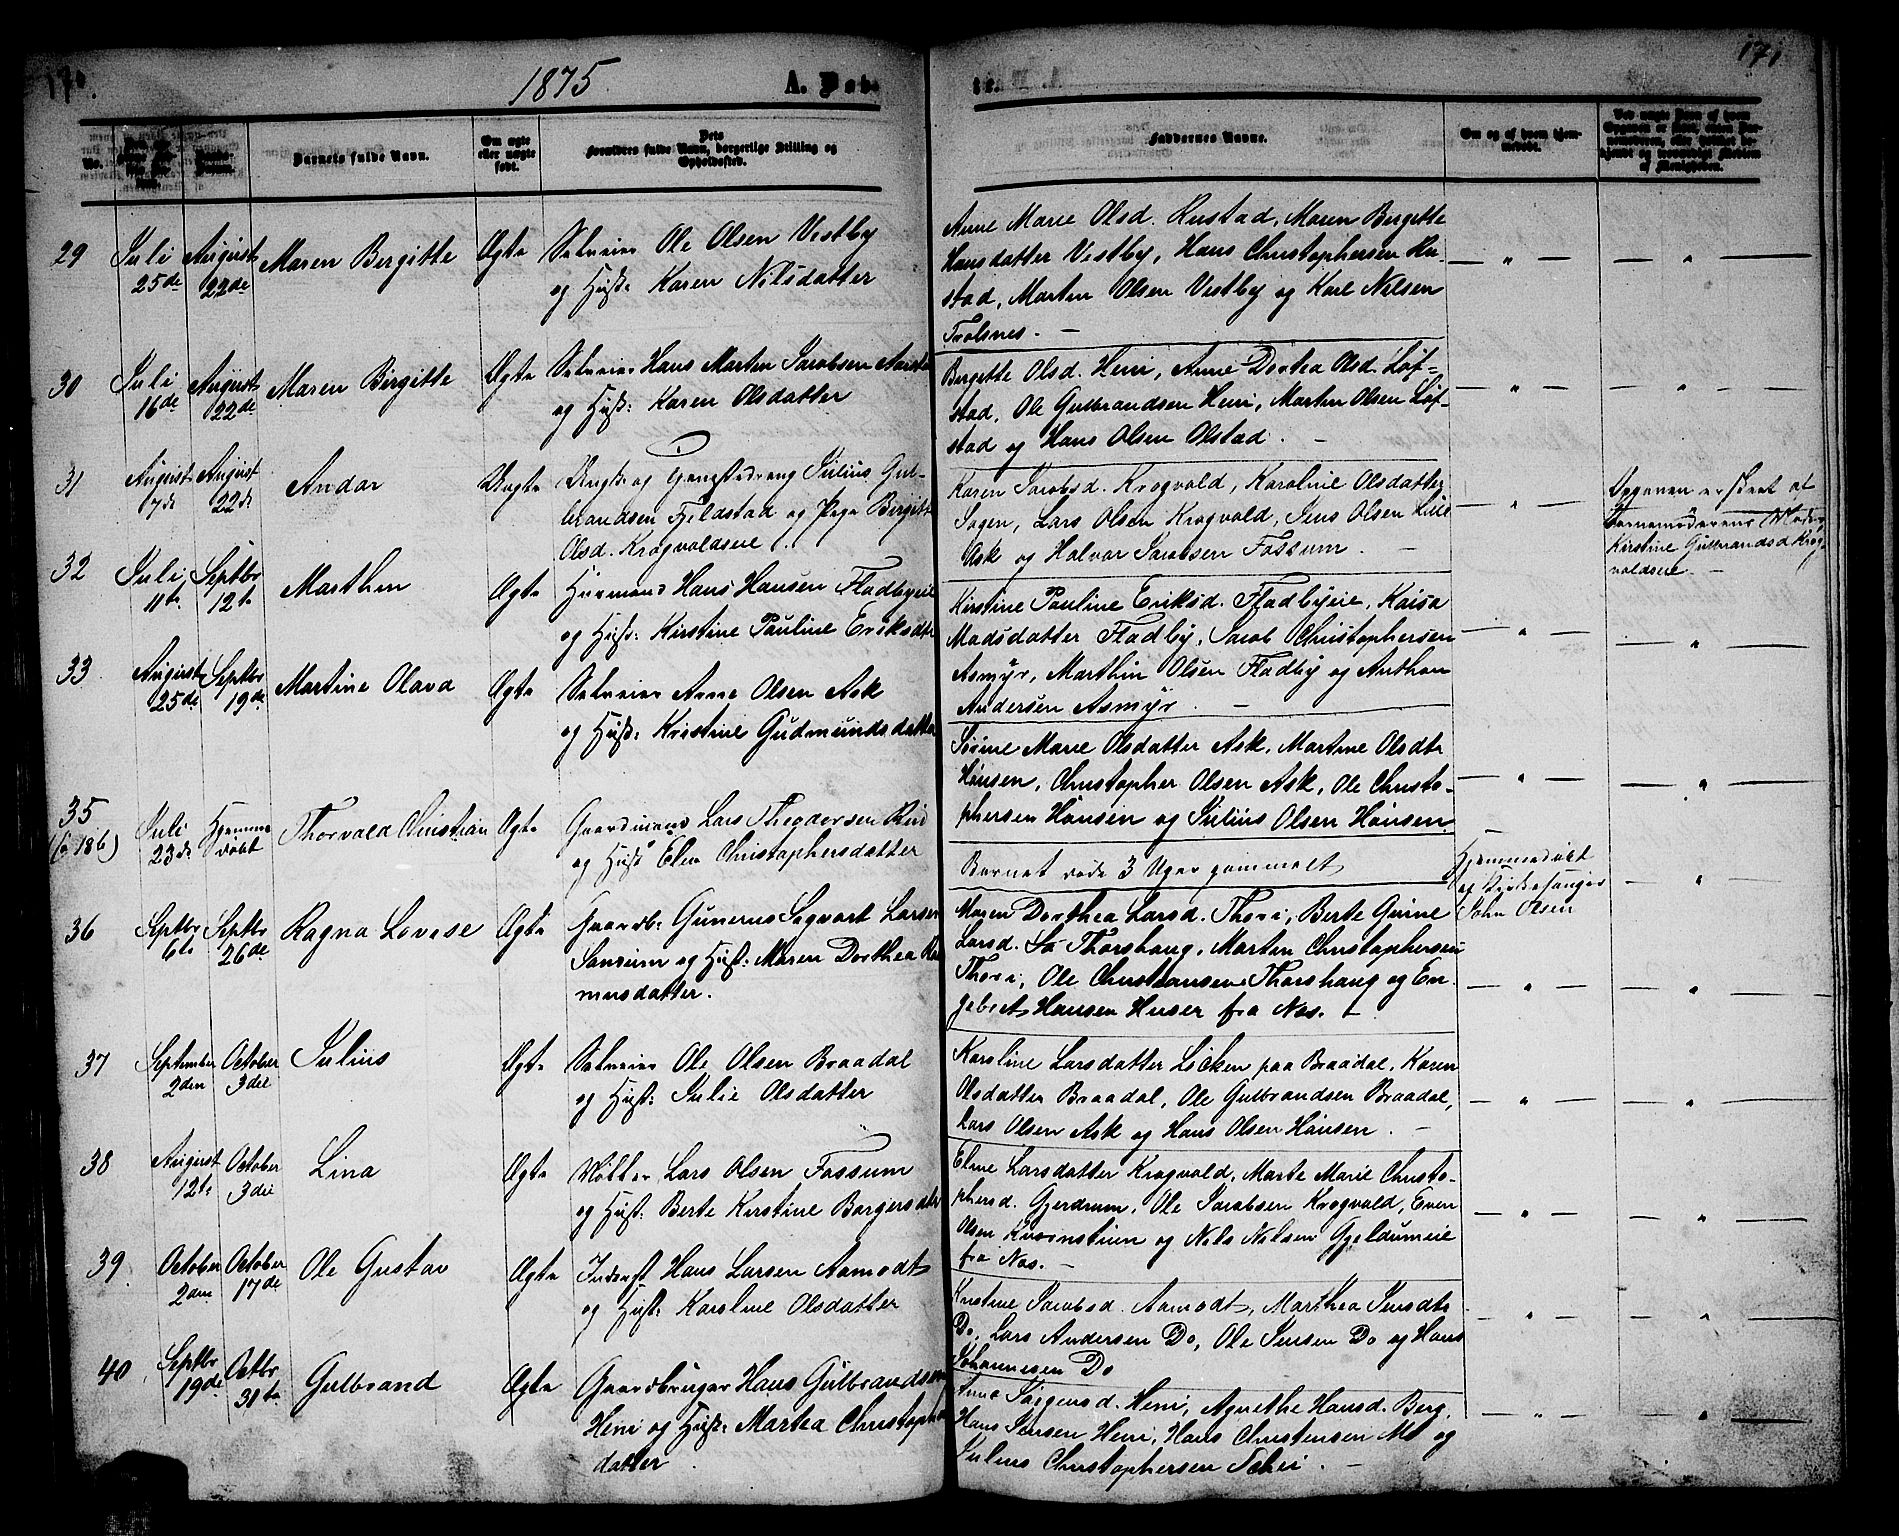 170.
1875.
A. Fød-
171
No.
Barnets fulde Navn.
Om ægte eller uægte født.
Forældres fulde Navn, borgerlige Stilling og Opholdssted.
Faddernes Navne.
Om og af hvem hjemmedøbt.
29
Juli 25de
August 22de
Maren Bergitte
Ægte
Selveier Ole Olsen Vestby
og Hust: Karen Nilsdatter
Anne Marie Olsd. Rustad, Maren Bergitte
Hansdatter Vestby, Hans Christophersen Ru-
stad, Marten Olsen Vestby og Karl Nilsen
Trolsnes. —
— " —
— " —
30
Juli 16de
August 22de
Maren Birgitte
Ægte
Selveier Hans Marten Jacobsen
og Hust: Karen Olsdatter
Bergitte Olsd. Heni, Anne Dortea Olsd. Løf-
stad, Ole Gulbrandsen Heni, Marten Olsen Løf-
stad og Hans Olsen Olstad. —
— " —
— " —
31
August 7de
August 22de
Andor
Uægte
Ungk. og Julius Gul-
brandsen Fjeldstad og Pige Birgitte
Olsd. Krogvoldseie.
Karen Jacobsd. Krogvold, Karoline Olsdatter
Sagen, Lars Olsen Krogvold, Jens Olsen Lille
Ask og Halvor Jacobsen Fossum. —
— " —
Opgaven er af
Barnemoderens Moder
Kirstine Gulbrandsd Krog-
voldseie. —
32
Juli 11te
Septbr 12te
Marthin
Ægte
Huusmand Hans Hansen Fladbyeie
og Hust: Kirstine Pauline Eriksdt.
Kirstine Pauline Eriksd. Fladbyeie, Kaisa
Madsdatter Fladby, Jacob Christophersen
Asmyr, Marthin Olsen Fladby og Anthon
Andersen Asmyr. —
— " —
— " —
33
August 25de
Septbr 19de
Martine Olava
Ægte
Selveier Arne Olsen Ask
og Hust: Kristine Gudmundsdatter
Sørine Marie Olsdatter Ask, Martine Olsdtr
Hønsen, Christopher Olsen Ask, Ole Christo-
phersen Hønsen og Julius Olsen Hønsen.
— " —
— " —
35
Juli 23de
Hjemme
døbt
Thorvald Christian
Ægte
Gaardmand Lars Theodorsen Rud
og Hust Elen Christophersdatter
Barnet døde 3 Uger gammelt
Hjemmedøbt
af Kirkesanger
John Olsen
— " —
36
Septbr 6te
Septbr 26de
Ragna Lovise
Ægte
Gaardb: Gunerus Sigvart Larsen
og Hust: Maren Dorthea
mersdatter.
Maren Dorthea Larsd. Thori, Berte Gurine
Larsd. Thorshaug, Marten Christophersen
Thori, Ole Christiansen Thorshaug og En-
gebret Hansen Huser fra Nas. —
— " —
— " —
37
September 2den
October 3die
Julius
Ægte
Selveier Ole Olsen Braadal
og Hust: Julie Olsdatter
Karoline Larsdatter Løcken paa Braadal, Karen
Olsdatter Braadal, Ole Gulbrandsen Braadal,
Lars Olsen Ask og Hans Olsen Hønsen. —
— " —
— " —
38
August 12te
October 3die
Lina
Ægte
Møller Lars Olsen Fossum
og Hust: Berte Kirstine Borgersdtr
Eline Larsdatter Krogvold, Marte Marie Christo-
phersd. Gjerdrum, Ole Jacobsen Krogvold, Even
Olsen Kvernstuen og Nils Nilsen Gjeldumeie
fra Nas. —
— " —
— " —
39
October 2den
October 17de
Ole Gustav
Ægte
Inderst Hans Larsen Aamodt
og Hust: Karoline Olsdatter
Kristine Jacobsd. Aamodt, Marthea Jensdtr
Do, Lars Andersen Do, Ole Jensen Do og Hans
Johannesen Do
— " —
— " —
40
Septbr 19de
Octbr 31te
Gulbrand
Ægte
Gaardbruger Hans Gulbrandsen
Heni og Hust: Martea Christophers
datter.
Anne Jørgensd. Heni, Agnethe Hansd. Berg,
Hans Jensen Heni, Hans Christensen Mo og
Julius Christophersen Schei. —
— " —
— " —